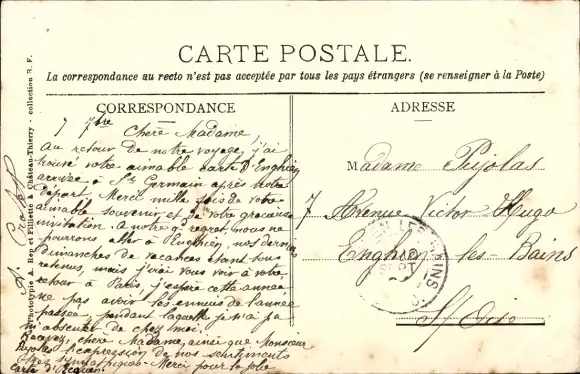 CARTE POSTALE.
La correspondance au recto n'est pas acceptée par tous les pays étrangers (se renseigner à la Poste)
CORRESPONDANCE
7 7bre Chère Madame,
Au retour de notre voyage, j'ai
trouvé votre aimable carte d'Enghien
arrivée à St Germain après notre
départ. Merci mille fois de votre
aimable souvenir et de votre gracieuse
invitation. A notre gd regret, nous ne
pourrons aller à Enghien, nos derniers
Dimanches de vacances étant tous
retenus, mais j'irai vous voir à votre
retour à Paris, j'espère cette année
ne pas avoir les ennuis de l'année
passée, pendant laquelle je n'ai pu
m'absenter de chez moi.
Recevez, chère Madame, ainsi que Monsieur
Pujolas l'expression de nos sentiments
sympathiques. Merci pour la jolie
carte d'
ADRESSE
Madame Pujolas
7 Avenue Victor Hugo
Enghien-les-Bains
S/Oise
Phototypie A. Rep et Filliette à Château-Thierry - collection R. F.